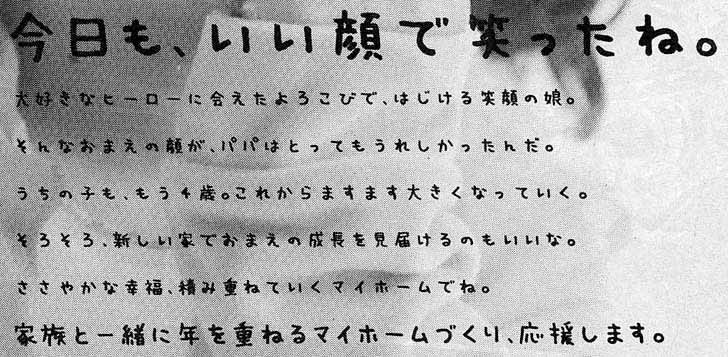 今日も、いい顔で笑ったね。
大好きなヒーローに会えたよろこびで、はじける笑顔の娘。
そんなおまえの顔が、パパはとってもうれしかったんだ。
うちの子も、もう4歳。これからますます大きくなっていく。
そろそろ、新しい家でおまえの成長を見届けるのもいいな。
ささやかな幸福、積み重ねていくマイホームでね。
家族と一緒に年を重ねるマイホームづくり、応援します。